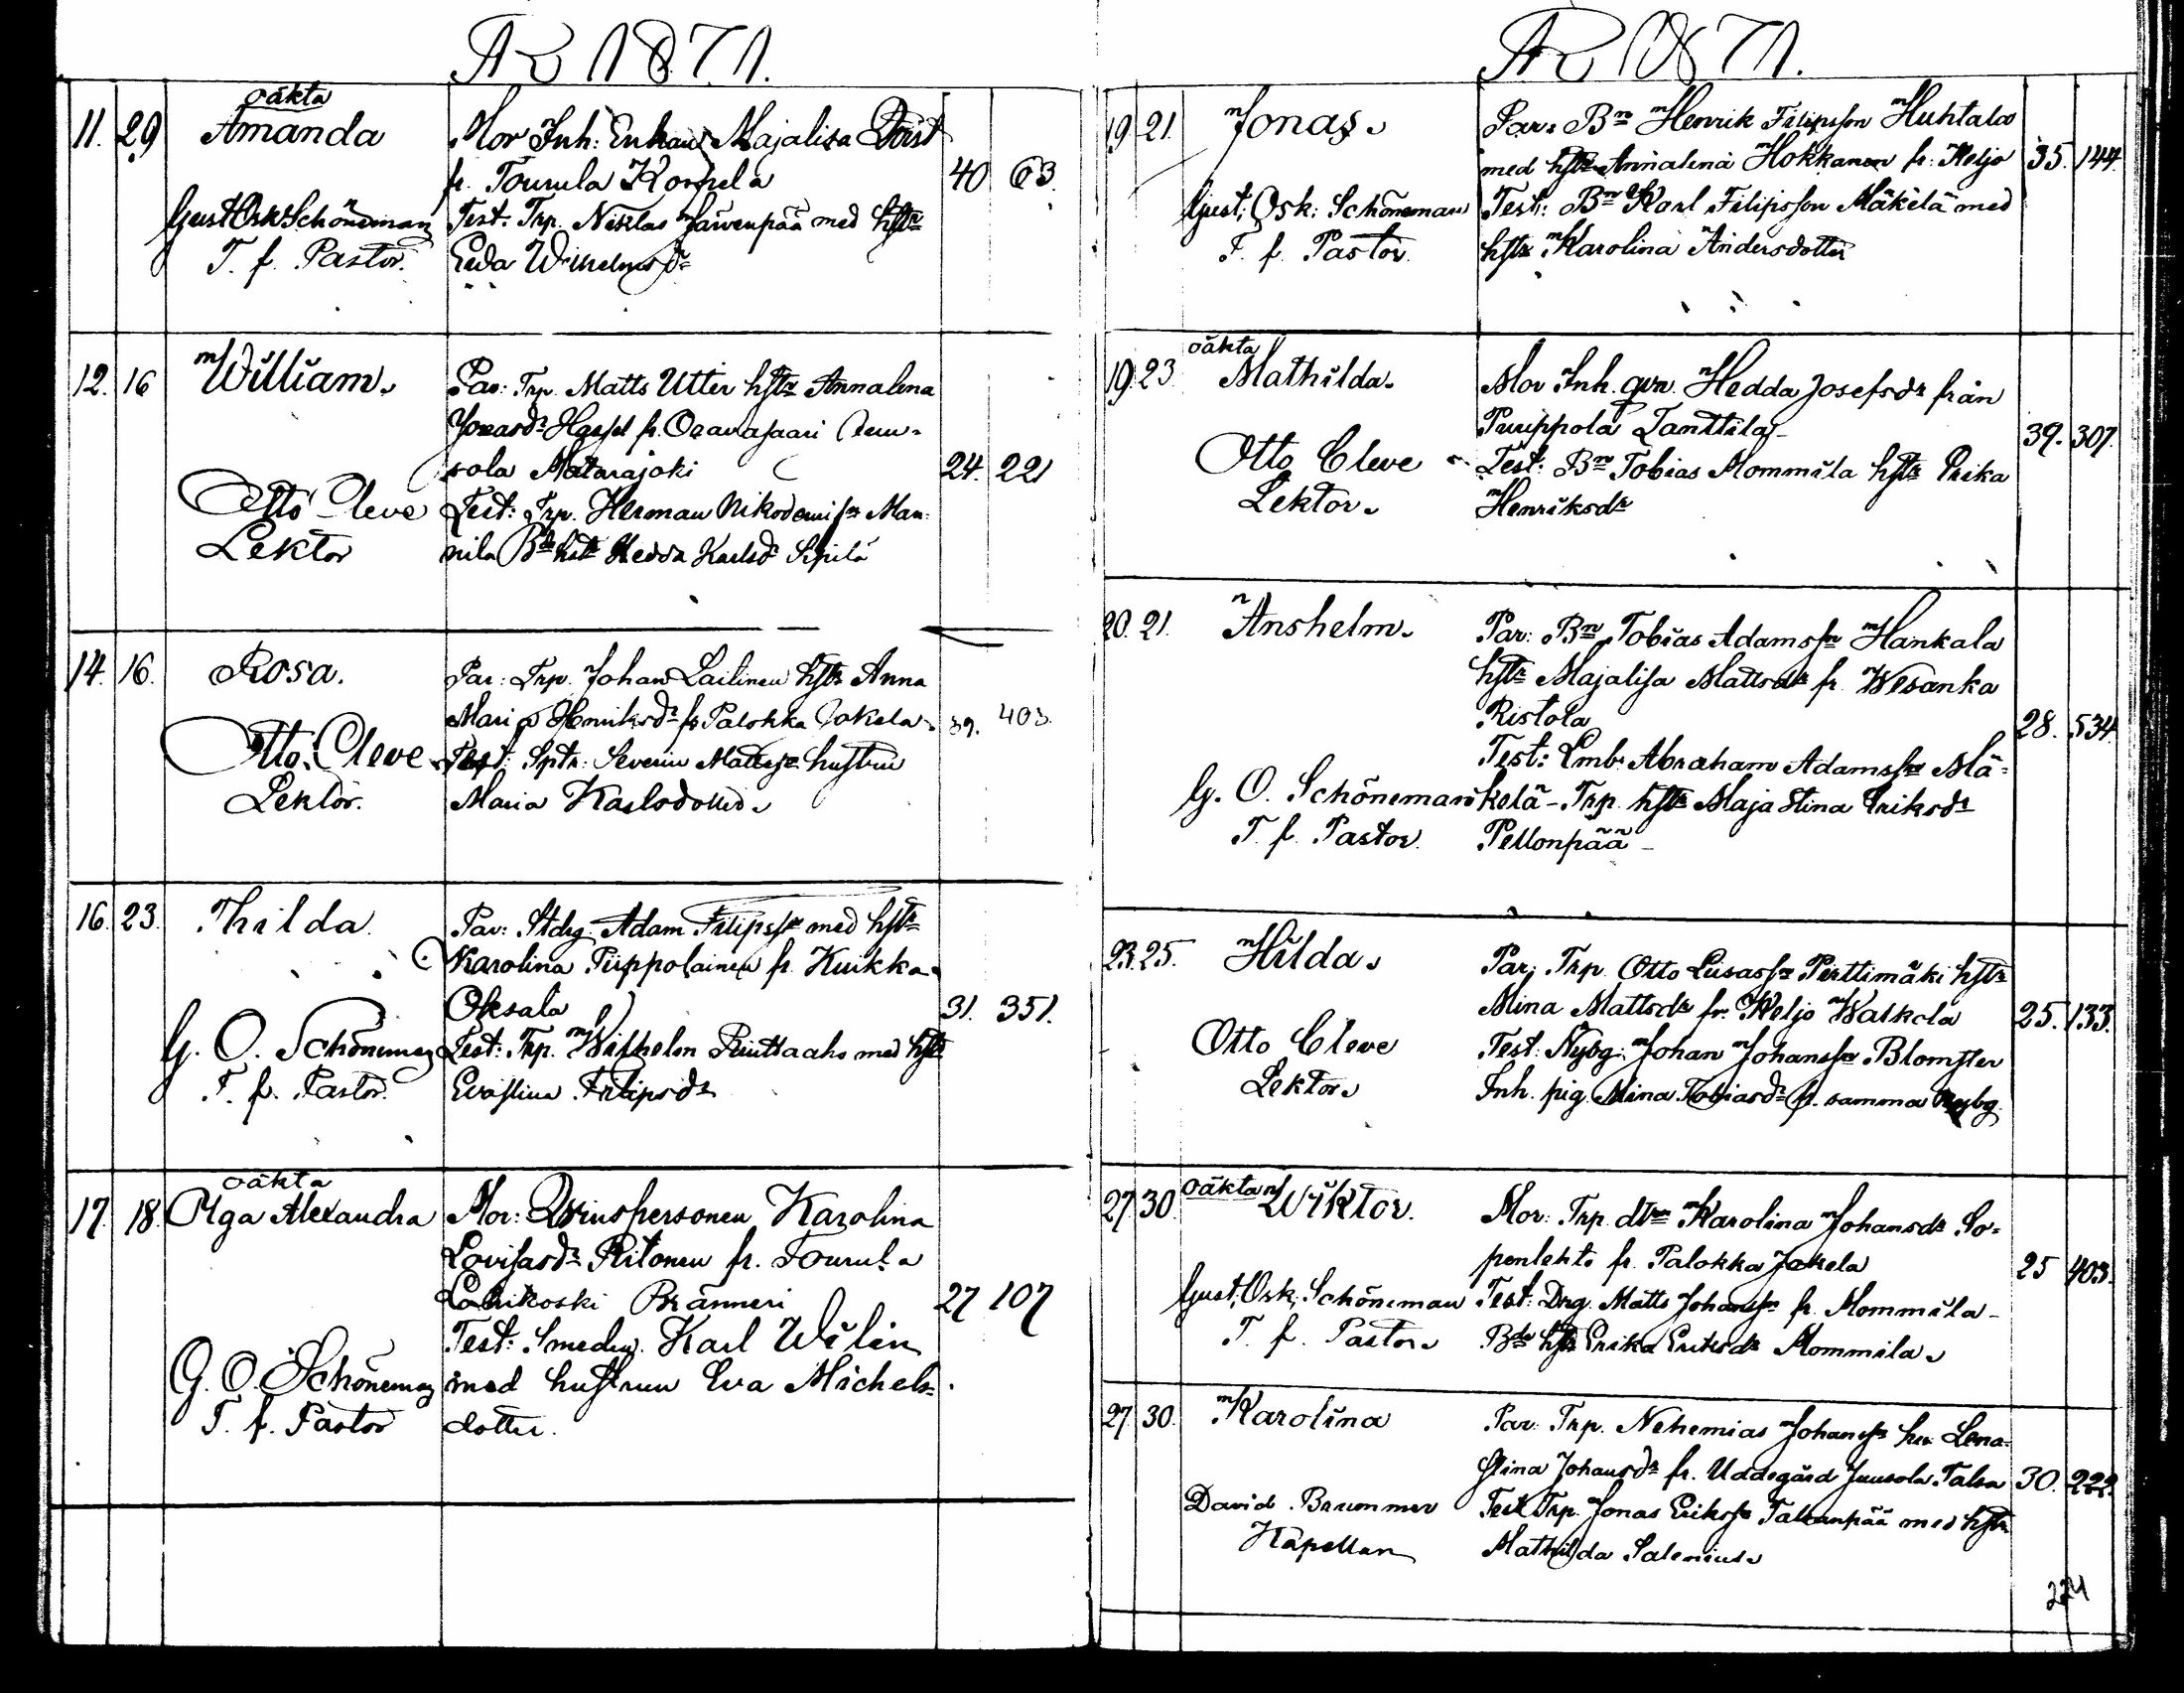 År 1871.
oäkta
11. 29 Amanda Mor Inh: Enkan Majalisa
fr. Tourula Korpela 40 63.
Gust Osk Schöneman Test: Trp. Niklas Järvenpää med hstr
T. f. Pastor. Eeda Wilhelmsdr
12. 16 William. Par: Trp. Matts Utter hstr Annalena
fr. Oravasaari
sola Matarajoki 24. 221
Otto Cleve Test: Trp. Herman Nikodemisn Man-
Lektor nila Bde hstr Hedda Karlsdr Sipilä
14. 16. Rosa. Par: Trp. Johan Lailinen hstr Anna
Maria Henriksdr fr Palokka Jokela 39. 403.
Otto Cleve Test: Sptr: Severin Mattssn hustru
Lektor. Maria Karlsdotter.
16. 23. Thilda. Par: Stdrg. Adam Filipssn med hstr
Karolina Piippolainen fr. Kuikka
Oksala 31. 351.
G. O. Schöneman Test: Trp. Wilhelm Ruuttaaho med hstr
T. f. Pastor. Evastina Filipsdr
oäkta
17. 18. Olga Alexandra Mor: Qvinspersonen Karolina
Lovisasdr Ritonen fr. Tourula
Lahikoski Bränneri 27 107
Test: Smeden Karl Welin
G. O. Schöneman med hustrun Eva Michels-
T. f. Pastor dotter.
År 1871.
19. 21. Jonas. Par: Bn Henrik Filipsson Huhtala
med hstr Annalena Hokkanen fr: Keljo 35. 144.
Gust: Osk: Schöneman Test: Bn Karl Filipsson Mäkelä med
T. f. Pastor. hstr Karolina Andersdotter
oäkta
19. 23. Mathilda. Mor Inh. qvn. Hedda Josefsdr från
Puuppola Tanttila 39. 307.
Otto Cleve Test: Bn Tobias Mommila hstr Erika
Lektor. Henriksdr
20. 21. Anshelm. Par: Bn Tobias Adamssn Hankala
hstr Majalisa Mattsdr fr. Wesanka
Ristola 28. 534.
Test: Lmb: Abraham Adamssn Mä-
G. O. Schöneman kelä - Trp. hstr Maja Stina Eriksdr
T. f. Pastor. Pellonpää
23. 25. Hilda. Par: Trp. Otto Lusassn Perttimäki hstr
Mina Mattsdr fr. Keljo Walkola 25. 133.
Otto Cleve Test: Nybg: Johan Johanssn Blomster
Lektor. Inh. pig. Mina Tobiasdr fr. samma Nybg.
27. 30. oäkta Wiktor. Mor: Trp. dtrn Karolina Johansdr So-
penlehto fr. Palokka Jokela 25 403.
Gust: Osk: Schöneman Test: Drg. Matts Johanssn fr. Mommila -
T. f. Pastor. Bde hstr Erika Eriksdr Mommila.
27. 30. Karolina Par: Trp. Nehemias Johanssn hu: Lena-
Stina Johansdr fr. Uddegård Juusola Talsa 30. 222.
David Brummer Test Trp. Jonas Erikssn Talvanpää med hstr
Kapellan Mathilda Salenius.
224